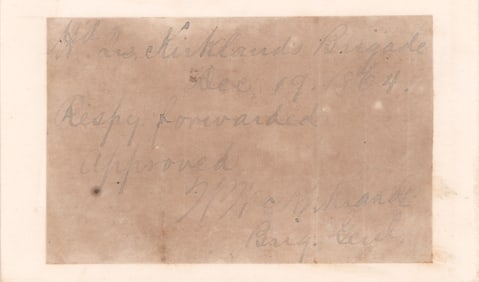 Hd. Qrs. Kirklands Brigade
Dec. 19. 1864.
Respy. forwarded
Approved
W. W. Kirkland
Brig. Genl.